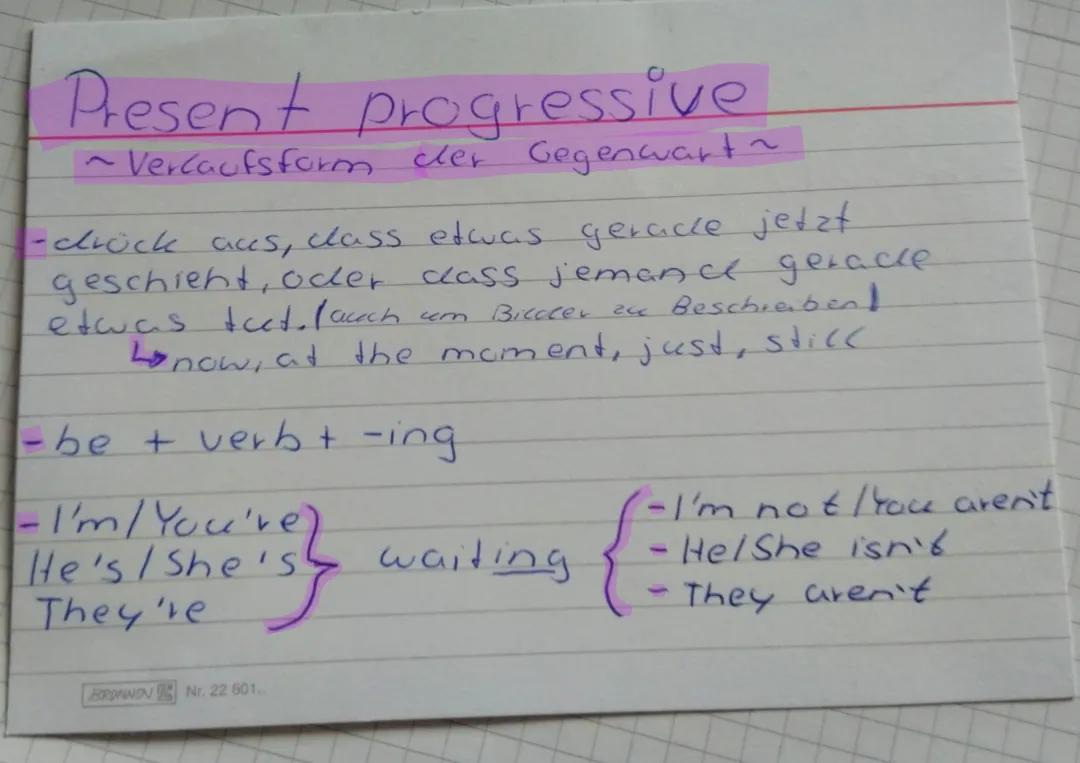 Present progressive
~Verlaufsform der Gegenwart~
-drück aus, dass etwas gerade jetzt
geschieht, oder dass jemand gerade
etwas tut. (auch um Bilder zu Beschreiben)
↳now, at the moment, just, still
-be + verb + -ing
-I'm/You're
He's/She's
They're
waiting
-I'm not/You aren't
- He/She isn't
- They aren't
Nr. 22 601